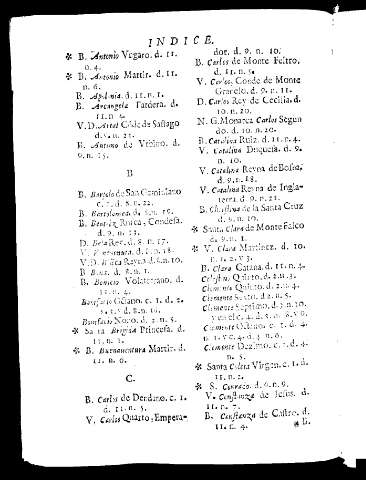 INDICE.
* B. Antonio Vegaro. d. 11.
n. 4.
* B. Antonio Martir. d. 11.
n. 6.
B. d. 11. n. 1.
B. Arcangela d.
11. n. 4.
V. D. de Sastago
d. 5. n. 21.
B. Antono de d.
9. n. 15.
B
B. de San Geminiano
c. 1. d. 8. n. 22.
B. Bartolomea. d. n. 19.
B. Beatriz Rusca, Condesa.
d. 9. n. 13.
D. Rey. d. 8. n. 17.
V. d. n. 18.
V. D. Reyna. d. 6. n. 10.
B. d. 8. n. 1.
B. Volaterano. d.
11. n. 4.
Bonifacio c. 1. d. 2.
Bonifacio Nono. d. 2. n. 5.
* Santa Brigida Princesa. d.
11. n. 1.
* B. Buenaventura Martir. d.
11. n. 6.
C.
B. Carlos de c. 1.
d. 11. n. 5.
V. Carlos Quarto, Empera-
dor. d. 9. n. 10.
B. Carlos de Monte Feltro.
d. 11. n. 5.
V. Carlos, Conde de Monte
d. 9. n. 11.
D. Carlos Rey de Cecilia. d.
10. n. 20.
N. G. Monarca Carlos Segun
do. d. 10. n. 20.
B. Catalina Ruiz. d. 11. n. 4.
V. Catalina Duquesa. d. 9.
n. 10.
V. Catalina Reyna de
d. 9. n. 18.
V. Catalina Reyna de Ingla-
terra. d. 9. n. 21.
B. Christina de la Santa Cruz
d. 9. n. 10.
* Santa Clara de Monte Falco
d. 9. n. 1.
* V. Clara Martinez. d. 10.
n. 1. 2. y 3.
B. Clara Catana. d. 11. n. 4.
Celestino Quinto. d. 2. n. 3.
Clemente Quinto. d. 2. n. 4.
Clemente Sexto. d. 2. n. 5.
Clemente Septimo. d. 2. n. 10.
Clemente Octavo. c. 1. d. 4.
Clemente Dezimo. c. 1. d. 4.
n. 5.
* Santa Coleta Virgen. c. 1. d.
11. n. 2.
* S. Conrado. d. 6. n. 9.
V. Constanza de Jesus. d.
11. n. 7.
B. Constanza de Castro. d.
11. n. 4.
* B.